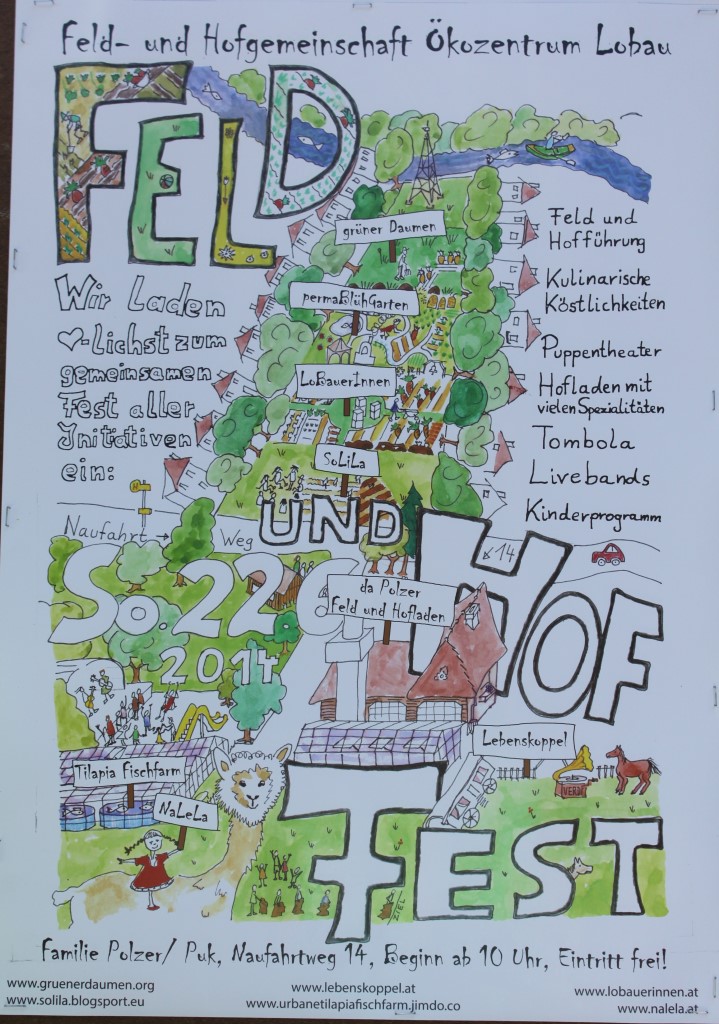 Feld- und Hofgemeinschaft Ökozentrum Lobau
FELD
Wir laden
♡-lichst zum
gemeinsamen
Fest aller
Initiativen
ein:
grüner Daumen
permaBlühGarten
LoBauerInnen
SoLiLa
Feld und
Hofführung
Kulinarische
Köstlichkeiten
Puppentheater
Hofladen mit
vielen Spezialitäten
Tombola
Livebands
Kinderprogramm
H
Naufahrt → Weg
UND
14
So. 22 6
2014
da Polzer
Feld und Hofladen
HOF
Lebenskoppel
Tilapia Fischfarm
NaLeLa
FEST
Familie Polzer/ Puk, Naufahrtweg 14, Beginn ab 10 Uhr, Eintritt frei!
www.gruenerdaumen.org
www.solila.blogsport.eu
www.lebenskoppel.at
www.urbanetilapiafischfarm.jimdo.co
www.lobauerinnen.at
www.nalela.at